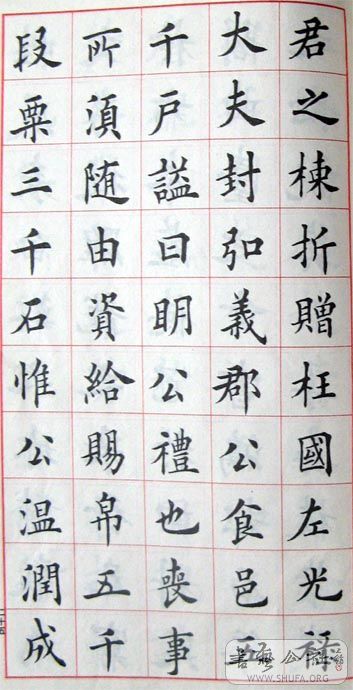 君之棟折贈柱國左光禄
大夫封弘義郡公食邑五
千戸謚曰明公禮也喪事
所須随由資給賜帛五千
段粟三千石惟公温潤成
書藝公社
WWW.SHUFA.ORG